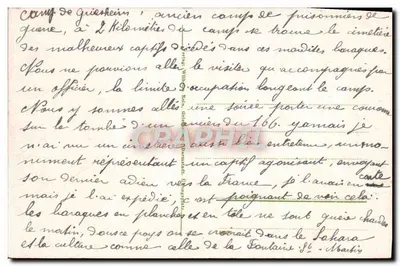 Camp de Griesheim : ancien camp de prisonniers de
guerre, à 2 kilomètres du camp se trouve le cimetière
des malheureux captifs décédés dans ces maudites baraques.
Nous ne pouvions aller le visiter qu'accompagnés par
un officier, la limite d'occupation longeant le camp.
Nous y sommes allés une soirée porter une couronne
sur la tombe d'un ancien du 166. jamais je
n'ai vu un cimetière aussi bien entretenu, un mo-
nument représentant un captif agonisant, envoyant
son dernier adieu vers la France, je l'avais en carte
mais je l'ai expédiée, c'est poignant de voir cela.
les baraques en planches et en tôle ne sont guère chaudes
le matin, dans ce pays on se croirait dans le Sahara
et la culture comme celle de la Fontaine St Martin
CPAPHIL